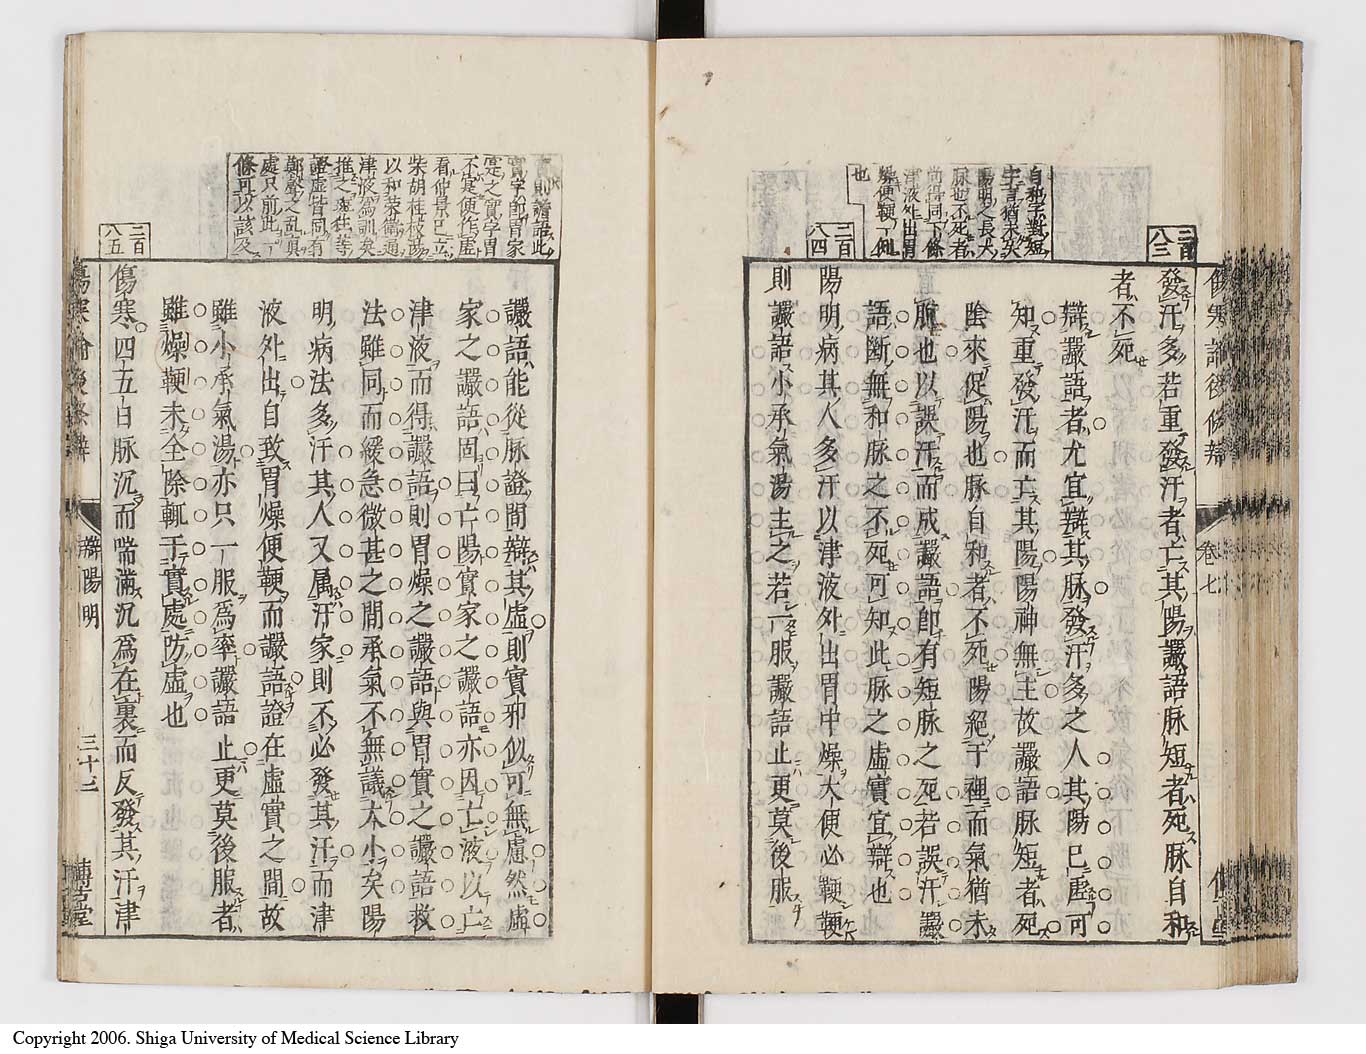 二百八三
發汗多若重發汗者亡其陽讝語脉短者死脉自和
者不死
辯讝語者尤宜辯其脉發汗多之人其陽已虛可
知重發汗而亡其陽陽神無主故讝語脉短者死
陰來促陽也脉自和者不死陽絕于裡而氣猶未
脫也以誤汗而成讝語卽有短脉之死若誤汗讝
語斷無和脉之不死可知此脉之虛實宜辯也
自和字對短
字言猶未央
陽明之長大
脉也不死者
尚得同下條
津液外出胃
燥便鞕一例
也
二百八四
陽明病其人多汗以津液外出胃中燥大便必鞕鞕
則讝語小承氣湯主之若一服讝語止更莫後服
傷寒論後條辨
卷七
實則讝語此
實字卽胃家
寔之實字胃
不寔便作虛
看仲景已立
柴胡桂枝湯
以和榮衛通
津液爲訓矣
推之
證虛皆同有
鄭聲之亂真
處只前此一
條可以該及
讝語能從脉證間辯其虛則實邪似可無慮然虛
家之讝語固曰亡陽實家之讝語亦因亡液以亡
津液而得讝語則胃燥之讝語與胃實之讝語救
法雖同而緩急微甚之間承氣不無議大小矣陽
明病法多汗其人又属汗家則不必發其汗而津
液外出自致胃燥便鞕而讝語證在虛實之間故
雖小承氣湯亦只一服爲率讝語止更莫後服者
雖燥鞕未全除輒于實處防虛也
二百八五
傷寒四五日脉沉而喘滿沉爲在裏而反發其汗津
傷寒論後條辨
辯陽明
三十二
博古堂
Copyright 2006. Shiga University of Medical Science Library